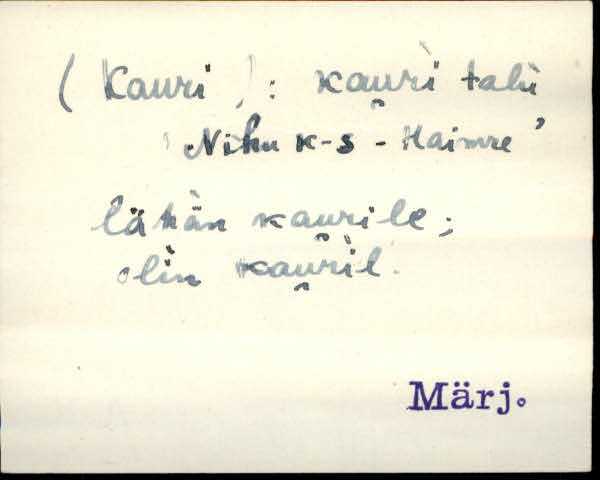 (Kauri): kau̯ri talu
'Nihu k-s - Haimre'
lähän kau̯rile;
olin kau̯ril.
Märj.